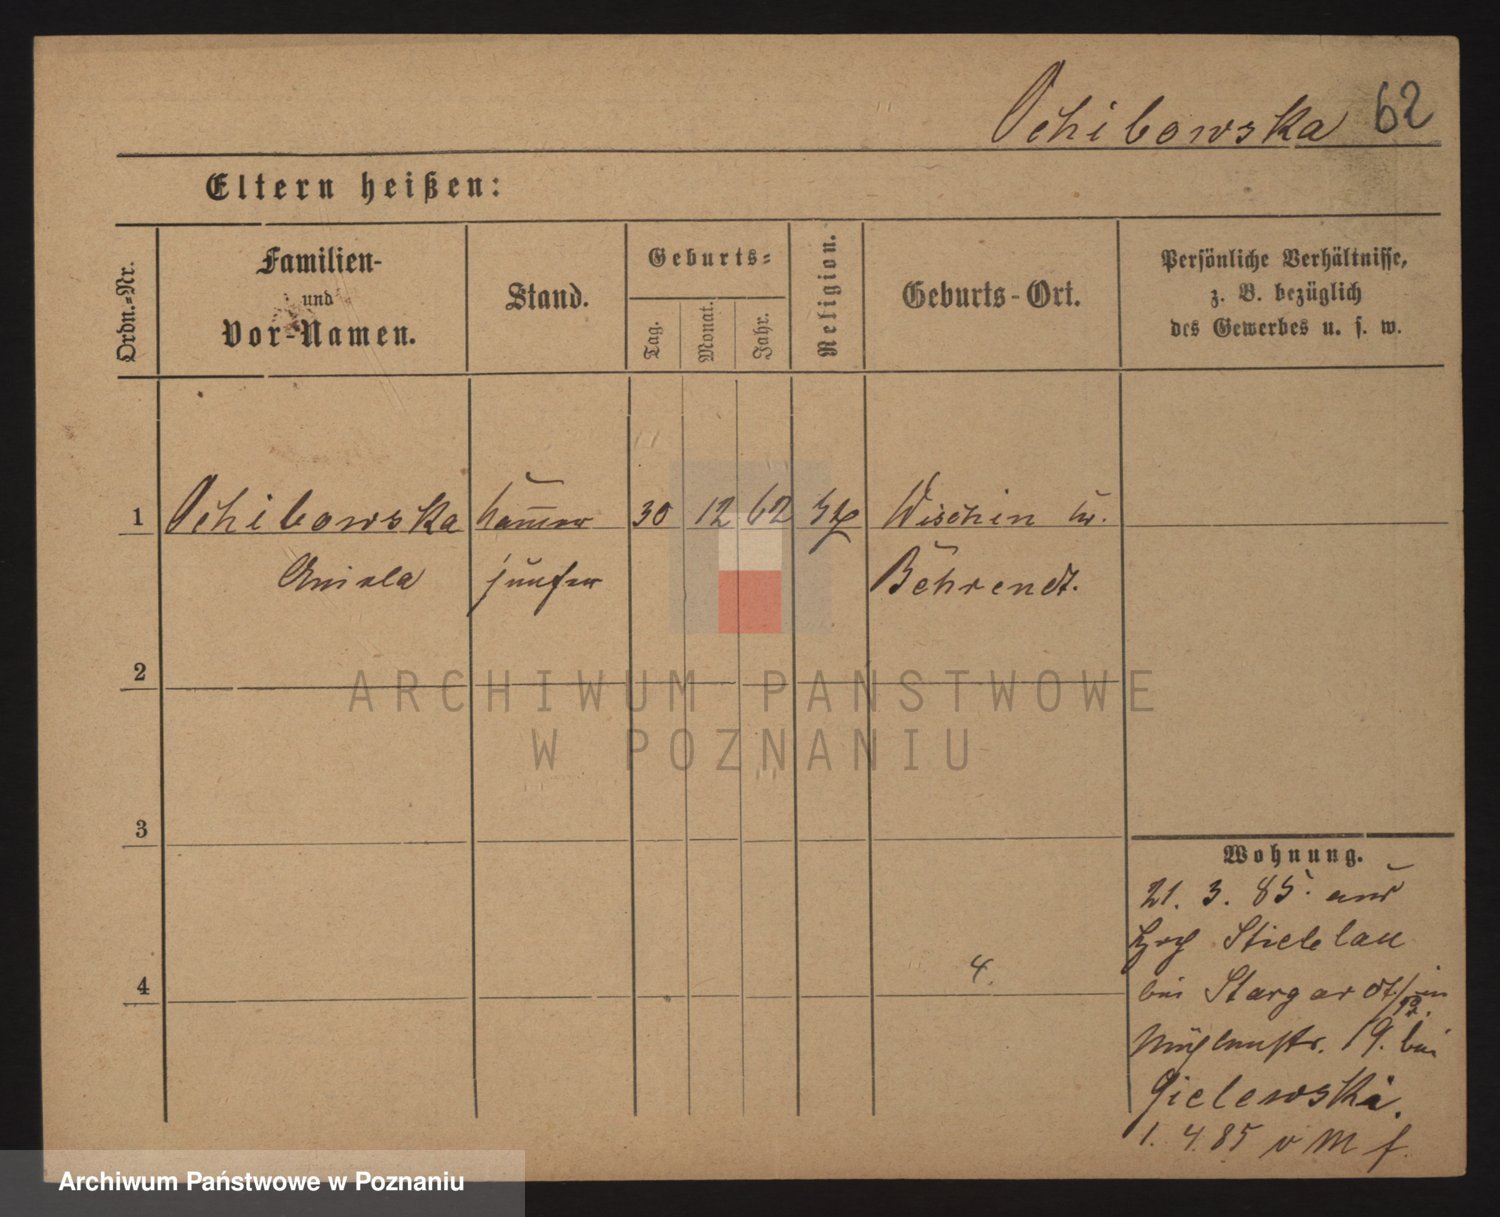 Ochibowska 62
Eltern heißen:
Ordn.-Nr.
Familien-
und
Vor-Namen.
Stand.
Geburts-
Tag.
Monat.
Jahr.
Religion.
Geburts-Ort.
Persönliche Verhältnisse,
z. B. bezüglich
des Gewerbes u. s. w.
1 Ochibowska Kammer 30 12 62 Wischin Kr.
Aniela jungfer Behrendt.
2
ARCHIWUM PAŃSTWOWE
W POZNANIU
3
Wohnung.
21. 3. 85. aus
bei Stargardt
4
4.
Mühlenstr. 19. bei
Gielewski.
1. 4. 85 v M f.
Archiwum Państwowe w Poznaniu